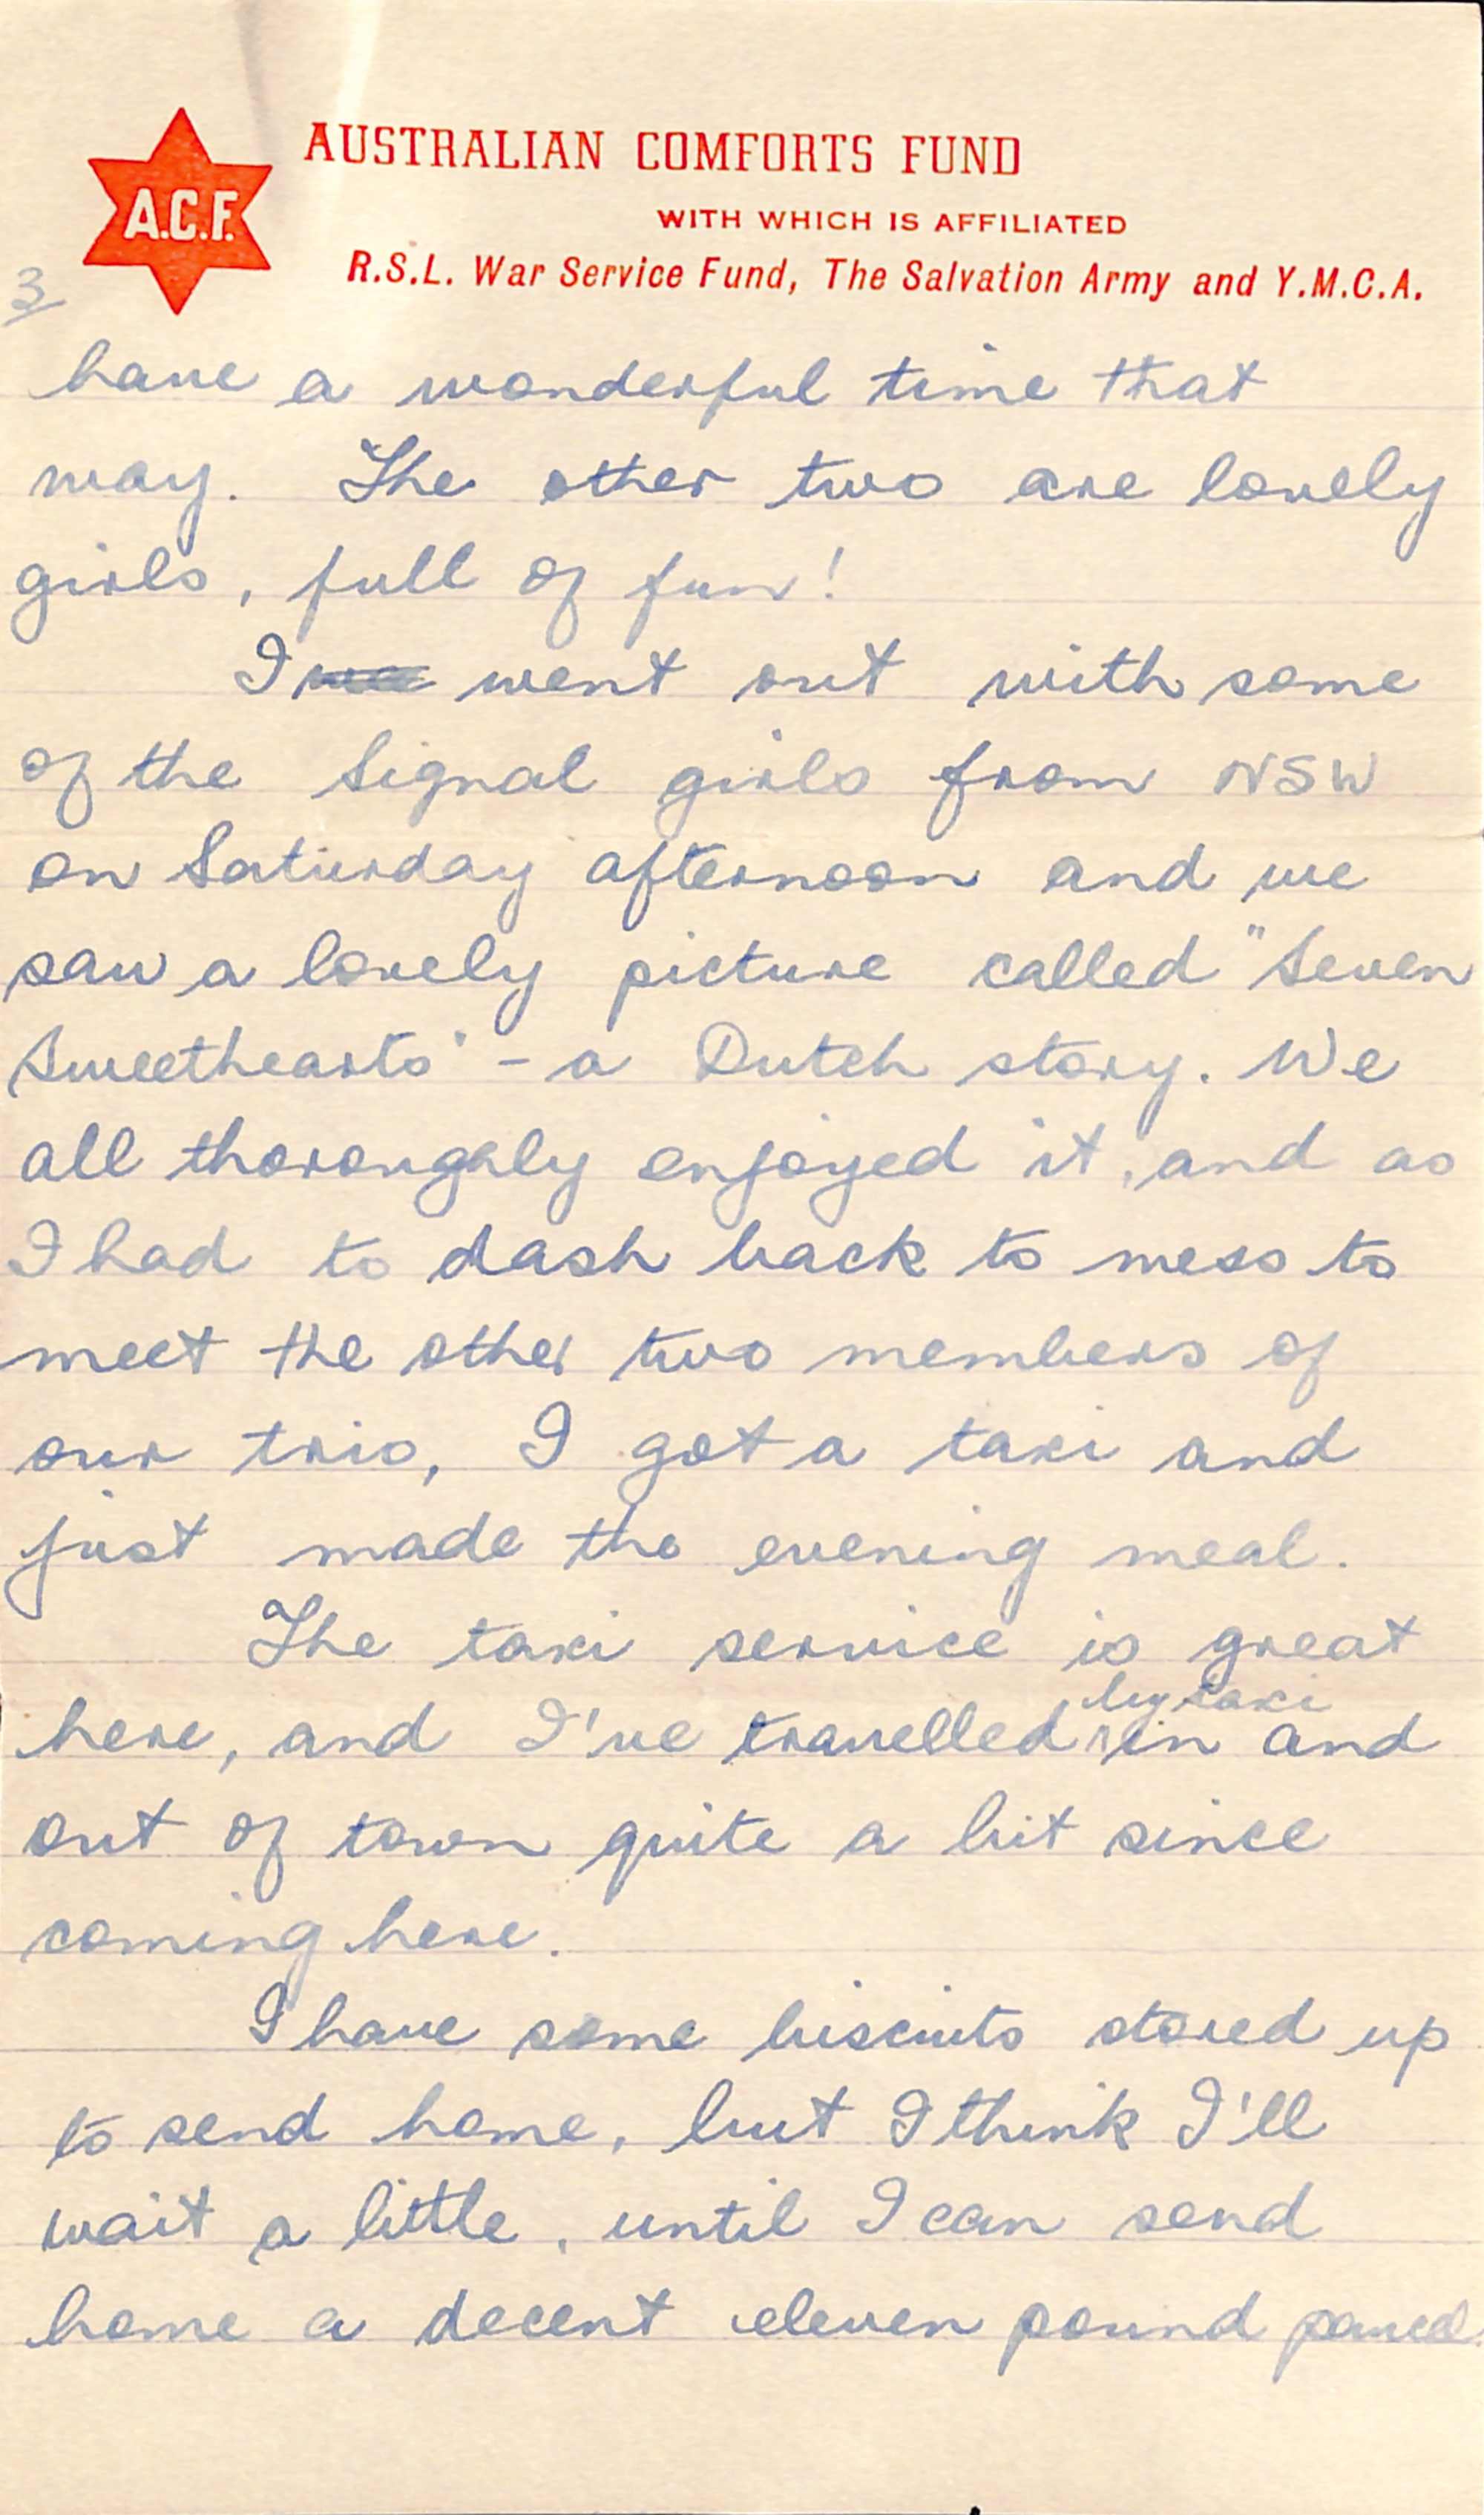 AUSTRALIAN COMFORTS FUND
A.C.F.
WITH WHICH IS AFFILIATED
R.S.L. War Service Fund, The Salvation Army and Y.M.C.A.
3
have a wonderful time that
way. The other two are lovely
girls, full of fun!
I wa went out with some
of the Signal girls from NSW
on Saturday afternoon and we
saw a lovely picture called "Seven
Sweethearts" - a Dutch story. We
all thoroughly enjoyed it, and as
I had to dash back to mess to
meet the other two members of
our trio, I got a taxi and
just made the evening meal.
The taxi service is great
by taxi
here, and I've travelled in and
out of town quite a bit since
coming here.
I have some biscuits stored up
to send home, but I think I'll
wait a little, until I can send
home a decent eleven pound parcel.